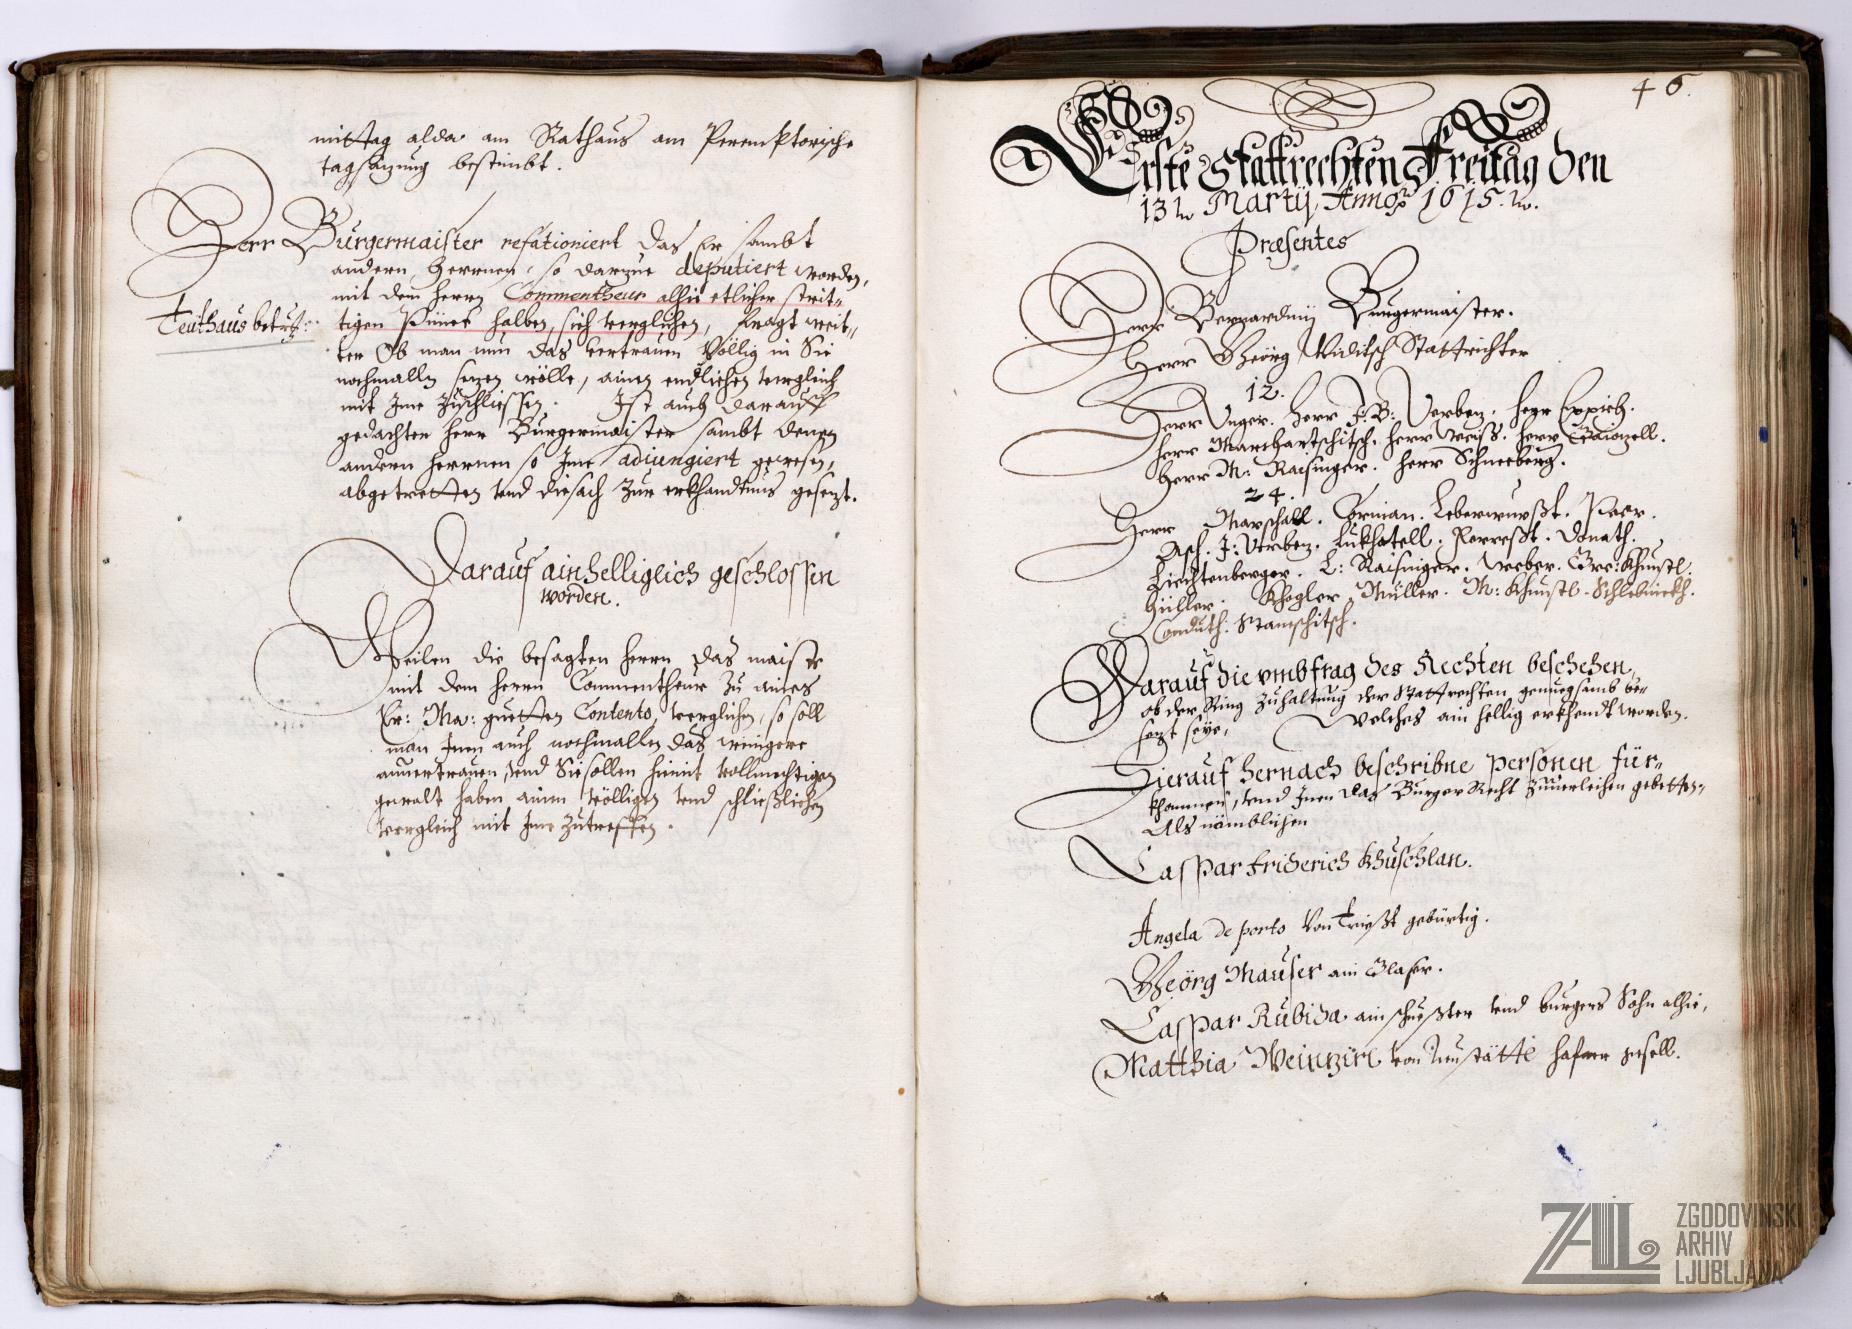 mittag alda am Rathaus am Peremptorische
tagsazung bestimbt.
Herr Burgermaister referioniert das Er sambt
andern Herrnen, so darzue deputiert worden,
mit dem Herrn Commentheur alhie etlicher strit-
Teuthaus betreff:
tigen Punct halben, sich verglichen, fragt weit-
ter Ob man nun das vertrauen Völlig in Sie
nochmalln sezen wölle, ainen endlichen vergleich
mit Ime Zuschliessen. Ist auch darauff
gedachter Herr Burgermaister sambt denen
andern Herrnen so Ime adiungiert gewesen,
abgetretten vnd die sach zur erkhandtnus gesezt.
Darauf ainhelligelich geschlossen
worden.
Weilen die besagten Herrn das maiste
mit dem Herrn Commentheur Zu aines
Er: Ma: guetten Contento verglichen, so soll
man Inen auch nochmallen das wenigere
anuertrauen, vnd Sie sollen hiemit vollmechtigen
gewalt haben ainen völligen vnd schließlichen
vergleich mit Ime Zutreffen.
46.
Erste Stattrechten Freitag den
13 Martÿ, Anno 1615.
Præsentes
Herr Bernardin Burgermaister.
Herr Georg Widitsch Stattrichter
12.
Herr Unger. Herr J: B: Verbez. Herr Eppich.
Herr Marchartschitsch. Herr Weiss. Herr
Herr M: Raisinger. Herr Schneeberg.
24.
Herr Marschall. Cornian. Leberwurßt. Peer.
Asch. J: Verbez. Lukhatell. Ferreßt. Donath.
Liechtenberger. L: Raisinger. Weber. Gre: Khunstl.
Hüller. Khogler. Müller. M: Khunstl.
Conduth. Stamschitsch.
Darauf die vmbfrag des Rechten beschehen,
ob der Ring Zuhaltung der Stattrechten genuegsamb be-
sezt seye, Welches ain hellig erkhendt worden.
Hierauf hernach beschribne Personen für-
khommen, vnd Inen das Burger Recht Zuuerleichen gebetten-
Als nämblichen
Caspar Friderich Khuschlan.
Angela de porto Von Triesst gebürtig.
Georg Mauser ain Glaser.
Caspar Rubida ain schuesster vnd burgers Sohn alhie,
Matthia Weinzirl von Neustättl hafner gesell.
ZAL
ZGODOVINSKI
ARHIV
LJUBLJANA